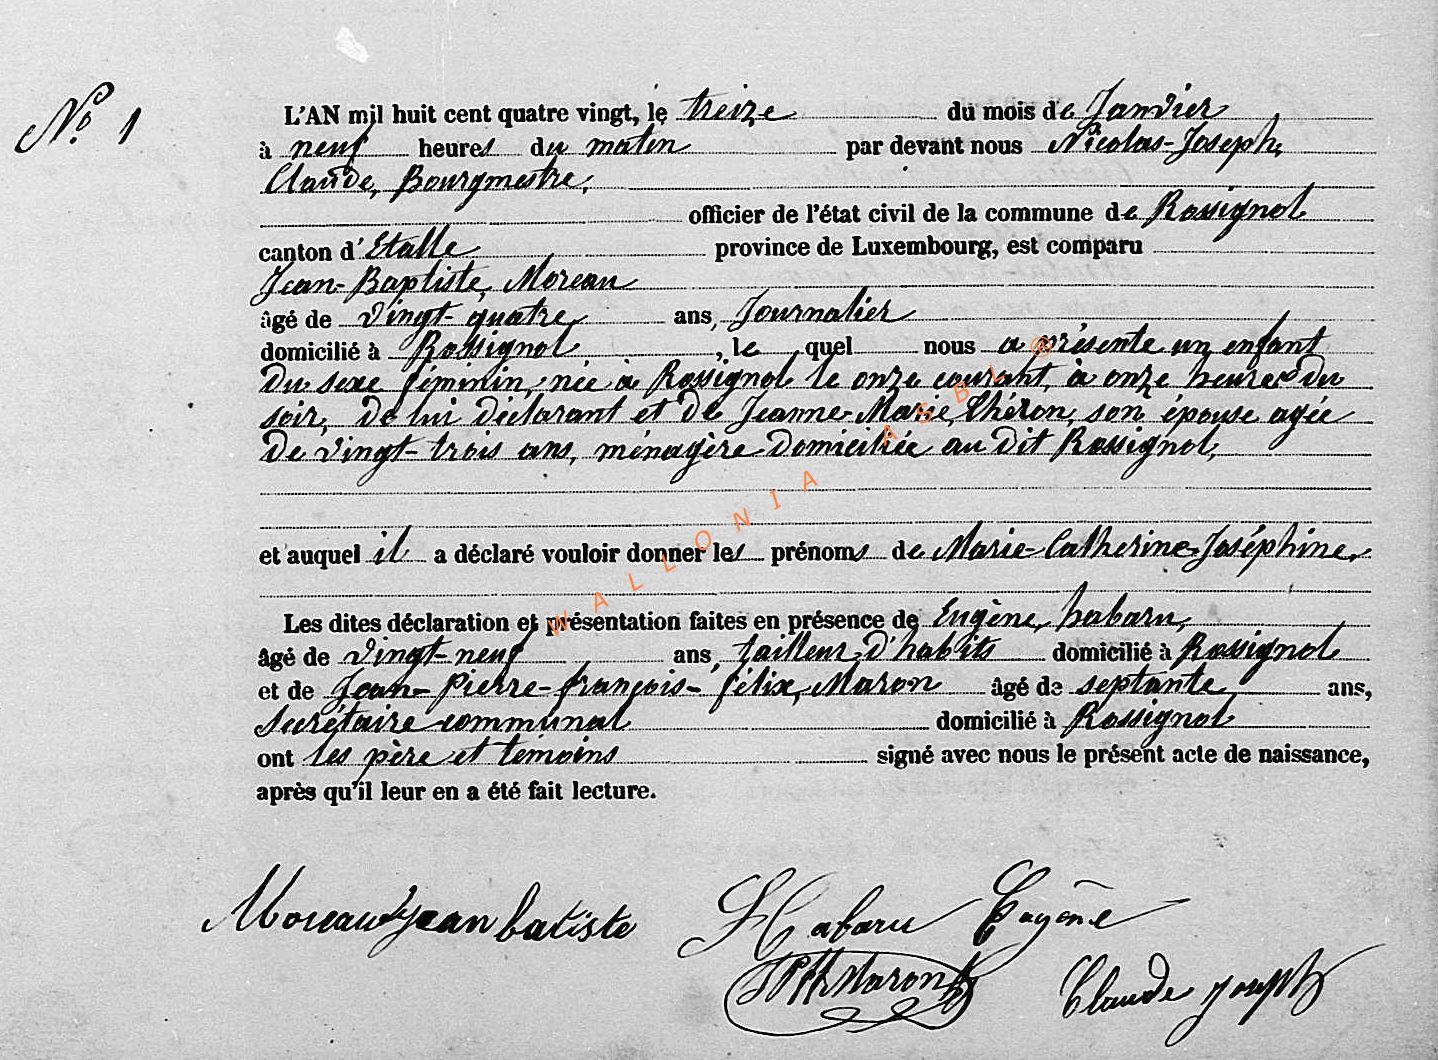 N° 1
L'AN mil huit cent quatre vingt, le treize du mois de Janvier
à neuf heures du matin par devant nous Nicolas-Joseph,
Claude, Bourgmestre,
officier de l'état civil de la commune de Rossignol
canton d'Etalle province de Luxembourg, est comparu
Jean-Baptiste, Moreau
âgé de vingt-quatre ans, Journalier
domicilié à Rossignol, le quel nous a présenté un enfant
du sexe féminin, née à Rossignol le onze courant, à onze heures du
soir, de lui déclarant et de Jeanne-Marie, Théron, son épouse agée
de vingt-trois ans, ménagère domiciliée au dit Rossignol,
et auquel il a déclaré vouloir donner les prénoms de Marie-Catherine-Joséphine,
Les dites déclaration et présentation faites en présence de Eugène, habaru,
âgé de vingt-neuf ans, tailleur d'habits domicilié à Rossignol
et de Jean-Pierre-françois-félix, Maron âgé de septante ans,
secrétaire communal domicilié à Rossignol
ont les père et témoins signé avec nous le présent acte de naissance,
après qu'il leur en a été fait lecture.
Moreau Jean batiste Habaru Eugène
Maron Claude Joseph
WALLONIA ASBL ®